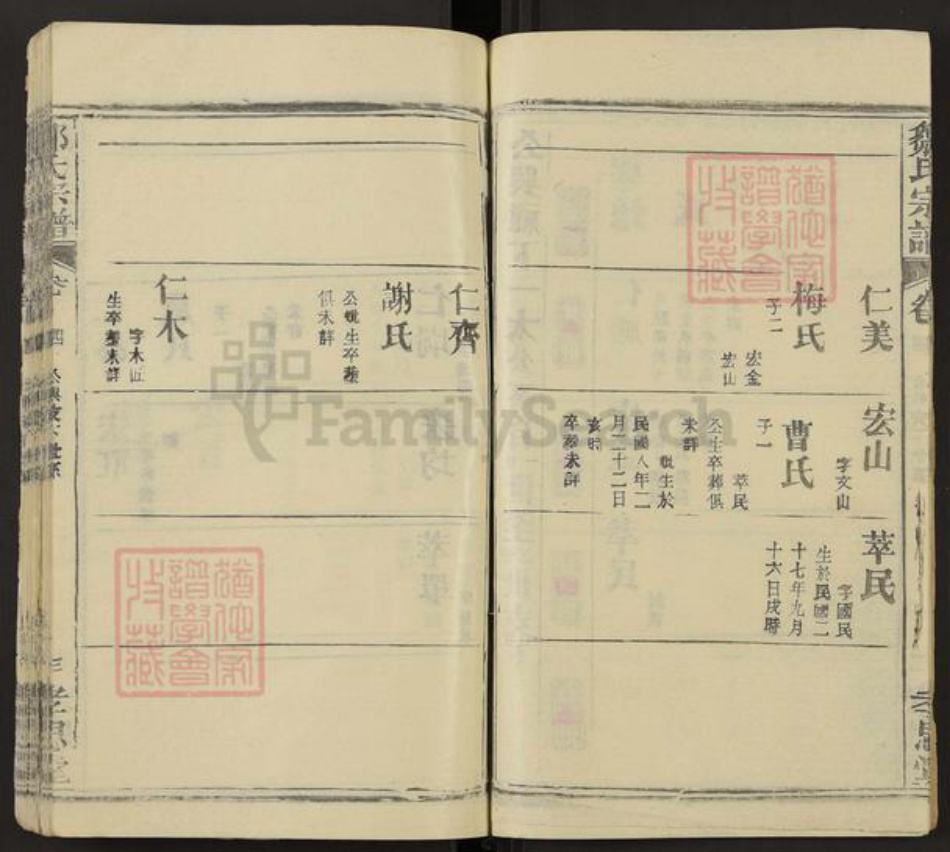 仁美
梅氏
子二
宏金
宏山
宏山
字文山
曹氏
子一
萃民
公生卒葬俱
未詳
氏生於
民國八年二
月二十二日
亥時
卒葬未詳
萃民
字國民
生於民國二
十七年九月
十六日戌時
仁齊
謝氏
公氏生卒葬
俱未詳
仁木
字木匠
生卒葬未詳
氏宗譜
孝思堂
猶他家
譜學會
收藏
FamilySearch